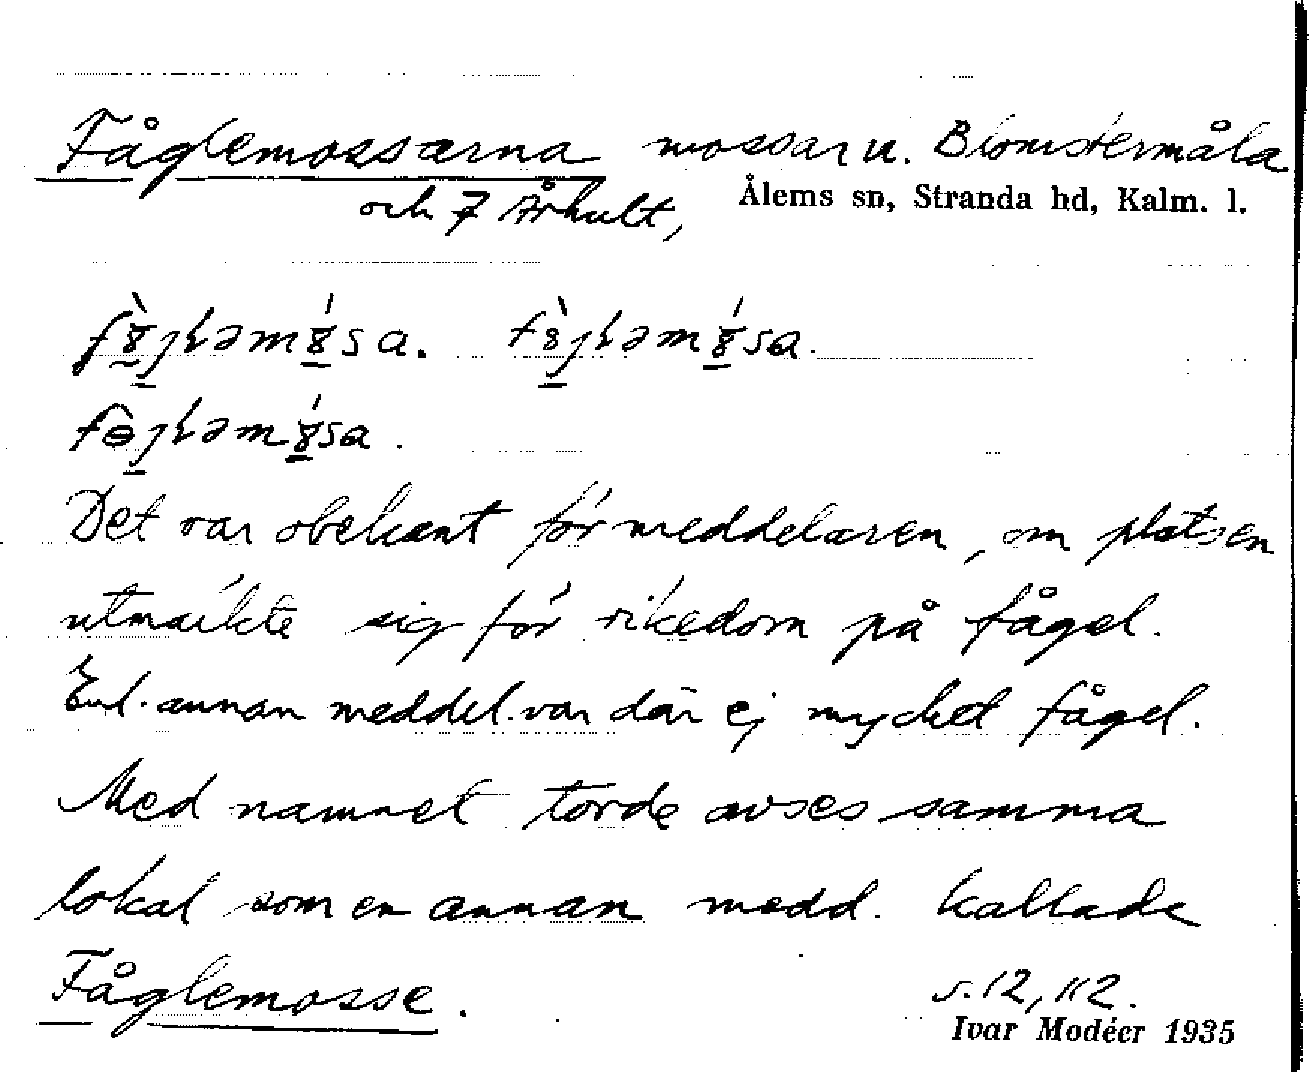 Fåglemossarna mossar u. Blomstermåla
och 7 Århult,
Ålems sn, Stranda hd, Kalm. l.
Det var obekant för meddelaren, om platsen
utmärkte sig för rikedom på fågel.
Enl. annan meddel. var där ej mycket fågel.
Med namnet torde avses samma
lokal som en annan medd. kallade
Fåglemosse.
s. 12, 112.
Ivar Modéer 1935